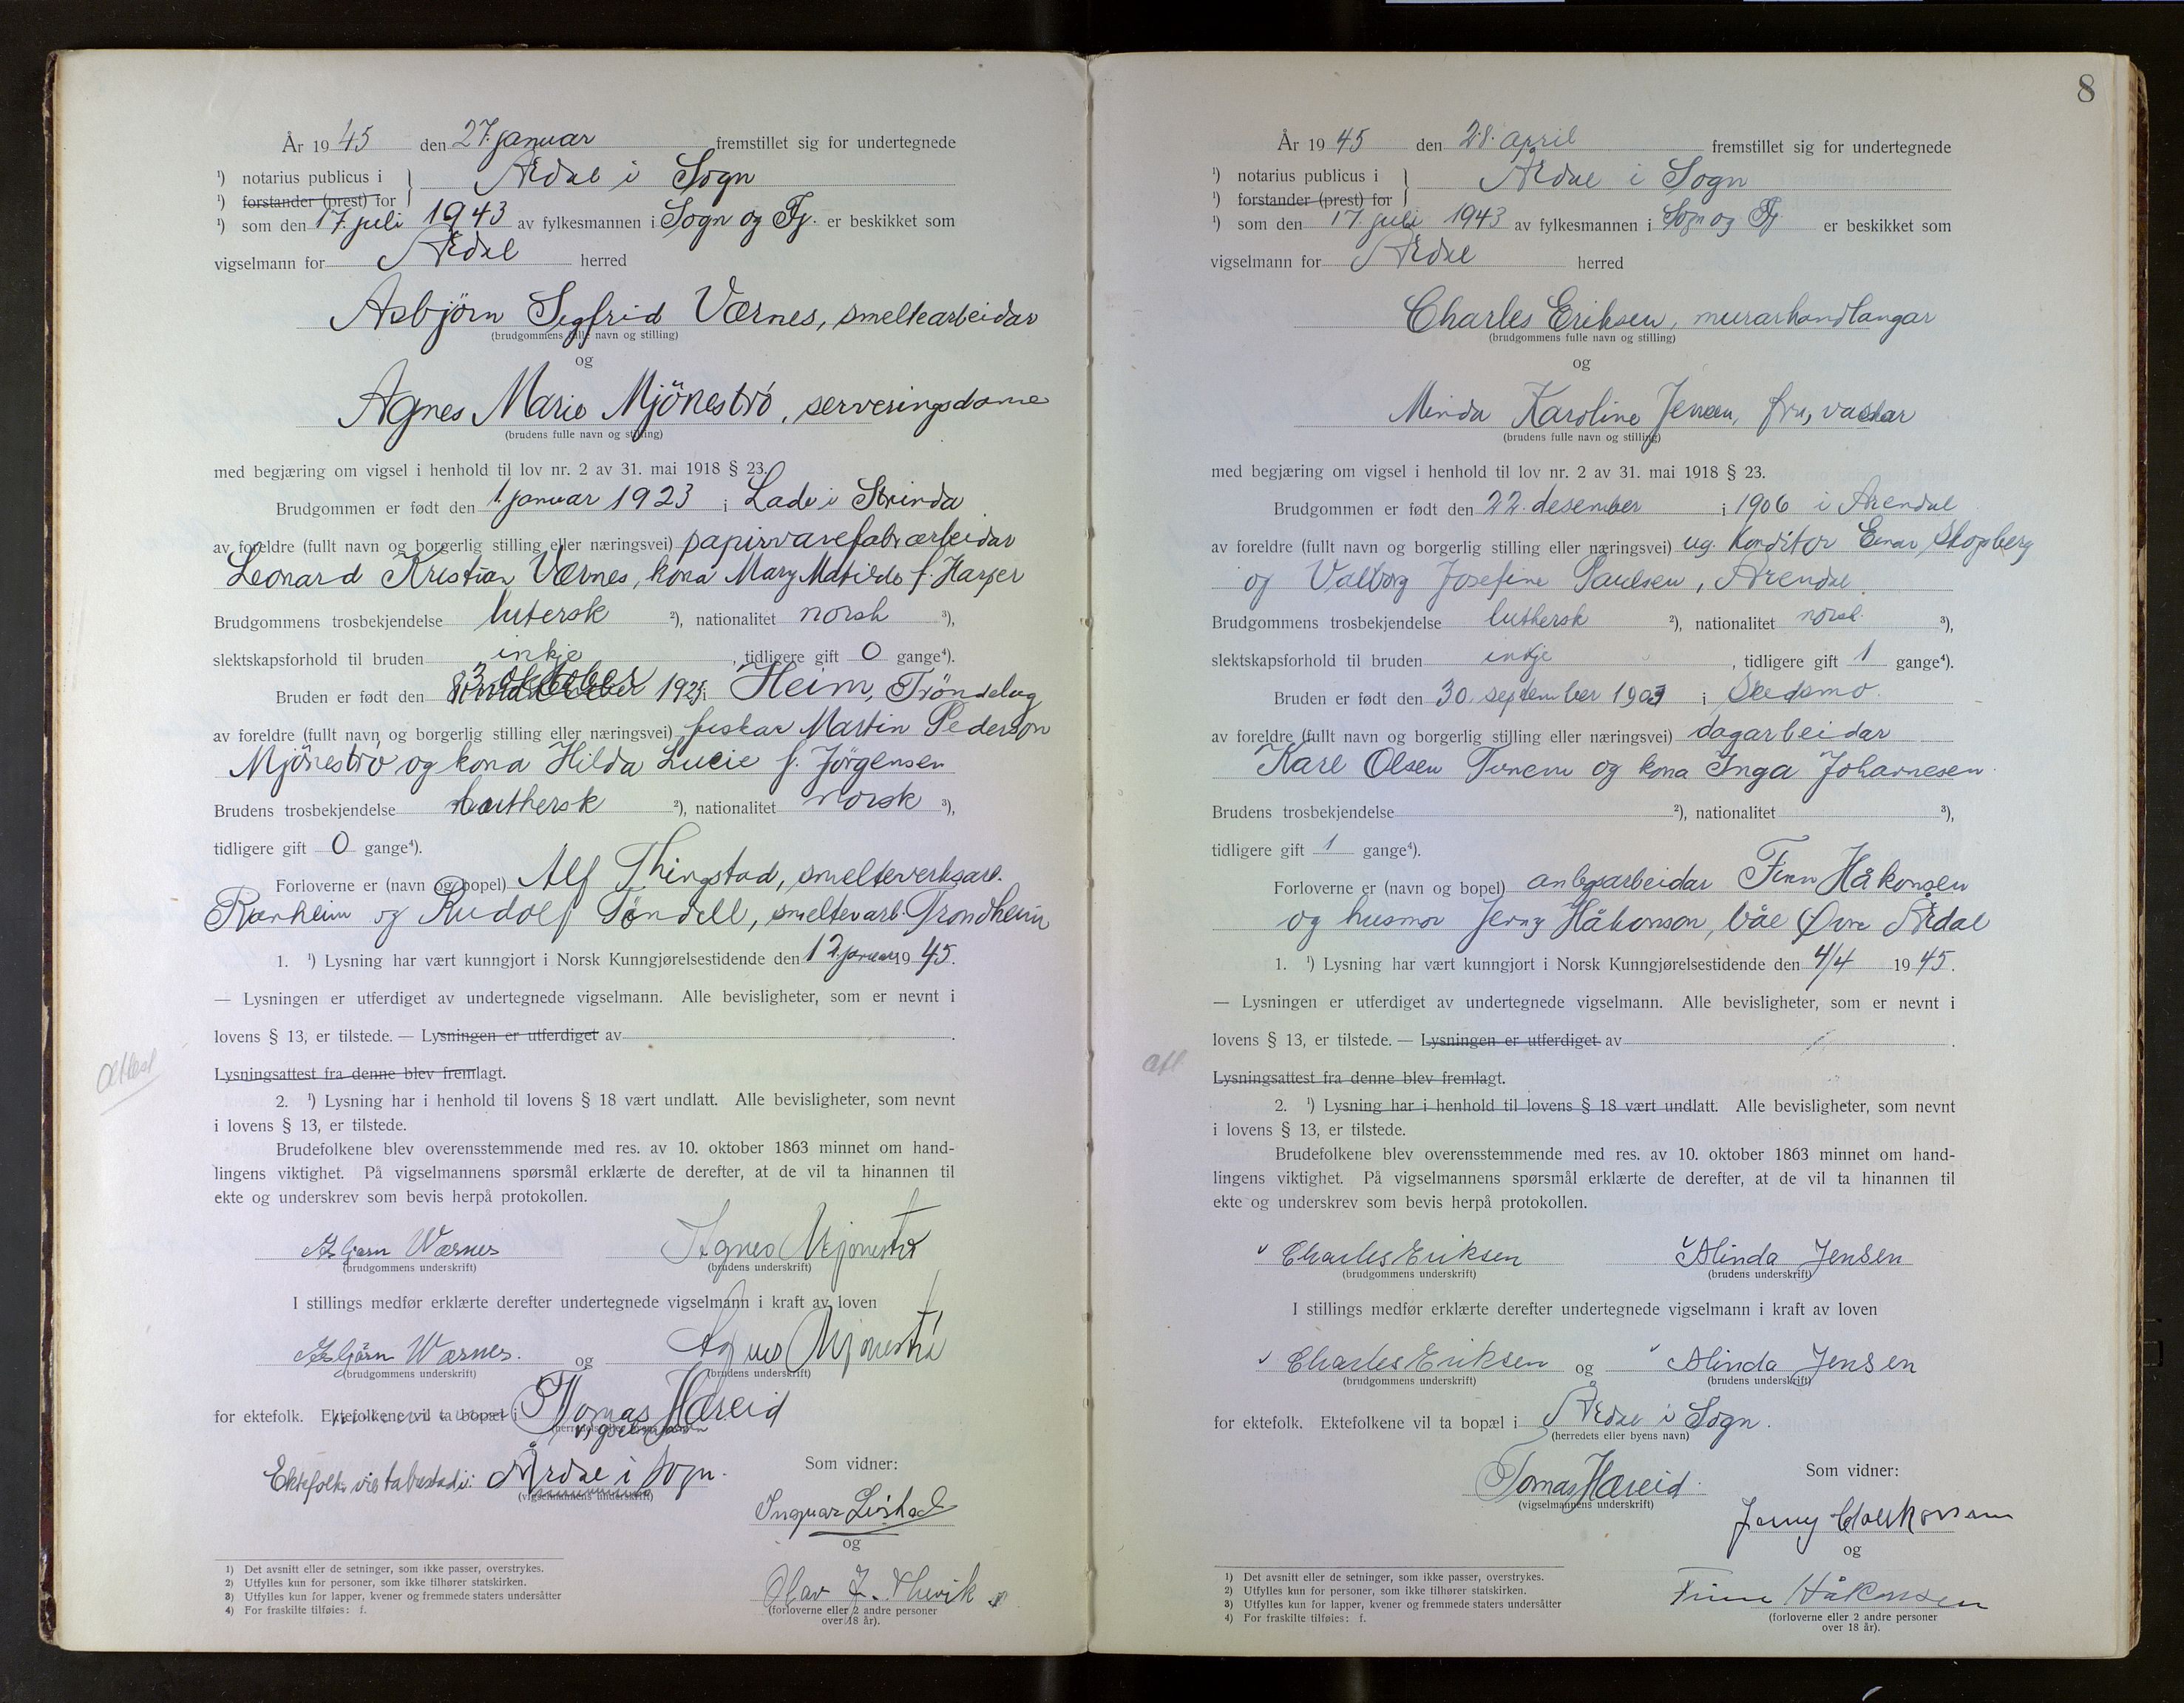 År 1945 den 27. januar fremstillet sig for undertegnede
¹) notarius publicus i } Årdal i Sogn
¹) forstander (prest) for
¹) som den 17. juli 1943 av fylkesmannen i Sogn og Fj. er beskikket som
vigselmann for Årdal herred
Asbjörn Segfrid Værnes, smeltearbeidar
(brudgommens fulle navn og stilling)
og
Agnes Marie Mjöneströ, serveringsdame
(brudens fulle navn og stilling)
med begjæring om vigsel i henhold til lov nr. 2 av 31. mai 1918 § 23.
Brudgommen er født den 1. januar 1923 i Lade i Strinda
av foreldre (fullt navn og borgerlig stilling eller næringsvei) papirvarefabr.arbeidar
Leonard Kristian Værnes, kona Mary Matilde f. Harper
Brudgommens trosbekjendelse lutersk ²), nationalitet norsk ³),
slektskapsforhold til bruden inkje , tidligere gift 0 gange⁴).
Bruden er født den 3 oktober 1925 i Heim, Tröndelag
av foreldre (fullt navn og borgerlig stilling eller næringsvei) fiskar Martin Pederson
Mjöneströ og kona Hilda Lucie f. Jörgensen
Brudens trosbekjendelse luthersk ²), nationalitet norsk ³),
tidligere gift 0 gange⁴).
Forloverne er (navn og bopel) Alf Thingstad, smelteverksarb.
Ranheim og Rudolf Töndell, smeltev.arb. Trondheim
1. ¹) Lysning har vært kunngjort i Norsk Kunngjørelsestidende den 12. januar 1945.
— Lysningen er utferdiget av undertegnede vigselmann. Alle bevisligheter, som er nevnt i
lovens § 13, er tilstede. — Lysningen er utferdiget av
attest
Lysningsattest fra denne blev fremlagt.
2. ¹) Lysning har i henhold til lovens § 18 vært undlatt. Alle bevisligheter, som nevnt
i lovens § 13, er tilstede.
Brudefolkene blev overensstemmende med res. av 10. oktober 1863 minnet om hand-
lingens viktighet. På vigselmannens spørsmål erklærte de derefter, at de vil ta hinannen til
ekte og underskrev som bevis herpå protokollen.
Asbjørn Wærnes Agnes Mjønestrø
(brudgommens underskrift) (brudens underskrift)
I stillings medfør erklærte derefter undertegnede vigselmann i kraft av loven
Asbjörn Wærnes. og Agnes Mjønestrø
(brudgommens underskrift) (brudens underskrift)
for ektefolk. Ektefolkene vil ta bopæl i Tomas Hæreid
(herredets eller byens navn)
vigselsmann
Ektefolk. vil ta bustad i: Årdal i Sogn.
(vigselmannens underskrift)
Som vidner:
Ingvar
og
Olav J.
(forloverne eller 2 andre personer
over 18 år).
1) Det avsnitt eller de setninger, som ikke passer, overstrykes.
2) Utfylles kun for personer, som ikke tilhører statskirken.
3) Utfylles kun for lapper, kvener og fremmede staters undersåtter
4) For fraskilte tilføies: f.
8
År 1945 den 28. april fremstillet sig for undertegnede
¹) notarius publicus i } Årdal i Sogn
¹) forstander (prest) for
¹) som den 17. juli 1943 av fylkesmannen i Sogn og Fj er beskikket som
vigselmann for Årdal herred
Charles Eriksen, murarhandlangar
(brudgommens fulle navn og stilling)
og
Minda Karoline Jensen, fru, vaskar
(brudens fulle navn og stilling)
med begjæring om vigsel i henhold til lov nr. 2 av 31. mai 1918 § 23.
Brudgommen er født den 22. desember i 1906 i Arendal
av foreldre (fullt navn og borgerlig stilling eller næringsvei) ug. Konditor Einar Skogberg
og Valborg Josefine Paulsen, Arendal
Brudgommens trosbekjendelse luthersk ²), nationalitet norsk ³),
slektskapsforhold til bruden inkje , tidligere gift 1 gange⁴).
Bruden er født den 30. september 1903 i Skedsmo.
av foreldre (fullt navn og borgerlig stilling eller næringsvei) dagarbeidar
Karl Olsen Tunem og kona Inga Johannesen
Brudens trosbekjendelse ²), nationalitet ³),
tidligere gift 1 gange⁴).
Forloverne er (navn og bopel) anlegsarbeidar Finn Håkonsen
og husmor Jenny Håkonson, båe Øvre Årdal
1. ¹) Lysning har vært kunngjort i Norsk Kunngjørelsestidende den 4/4 1945.
— Lysningen er utferdiget av undertegnede vigselmann. Alle bevisligheter, som er nevnt i
lovens § 13, er tilstede. — Lysningen er utferdiget av
att.
Lysningsattest fra denne blev fremlagt.
2. ¹) Lysning har i henhold til lovens § 18 vært undlatt. Alle bevisligheter, som nevnt
i lovens § 13, er tilstede.
Brudefolkene blev overensstemmende med res. av 10. oktober 1863 minnet om hand-
lingens viktighet. På vigselmannens spørsmål erklærte de derefter, at de vil ta hinannen til
ekte og underskrev som bevis herpå protokollen.
Charles Eriksen Minda Jensen
(brudgommens underskrift) (brudens underskrift)
I stillings medfør erklærte derefter undertegnede vigselmann i kraft av loven
Charles Eriksen og Minda Jensen
(brudgommens underskrift) (brudens underskrift)
for ektefolk. Ektefolkene vil ta bopæl i Årdal i Sogn.
(herredets eller byens navn)
Tomas Hæreid.
(vigselmannens underskrift)
Som vidner:
Jenny Haakonsen
og
Finn Håkonsen
(forloverne eller 2 andre personer
over 18 år).
1) Det avsnitt eller de setninger, som ikke passer, overstrykes.
2) Utfylles kun for personer, som ikke tilhører statskirken.
3) Utfylles kun for lapper, kvener og fremmede staters undersåtter
4) For fraskilte tilføies: f.